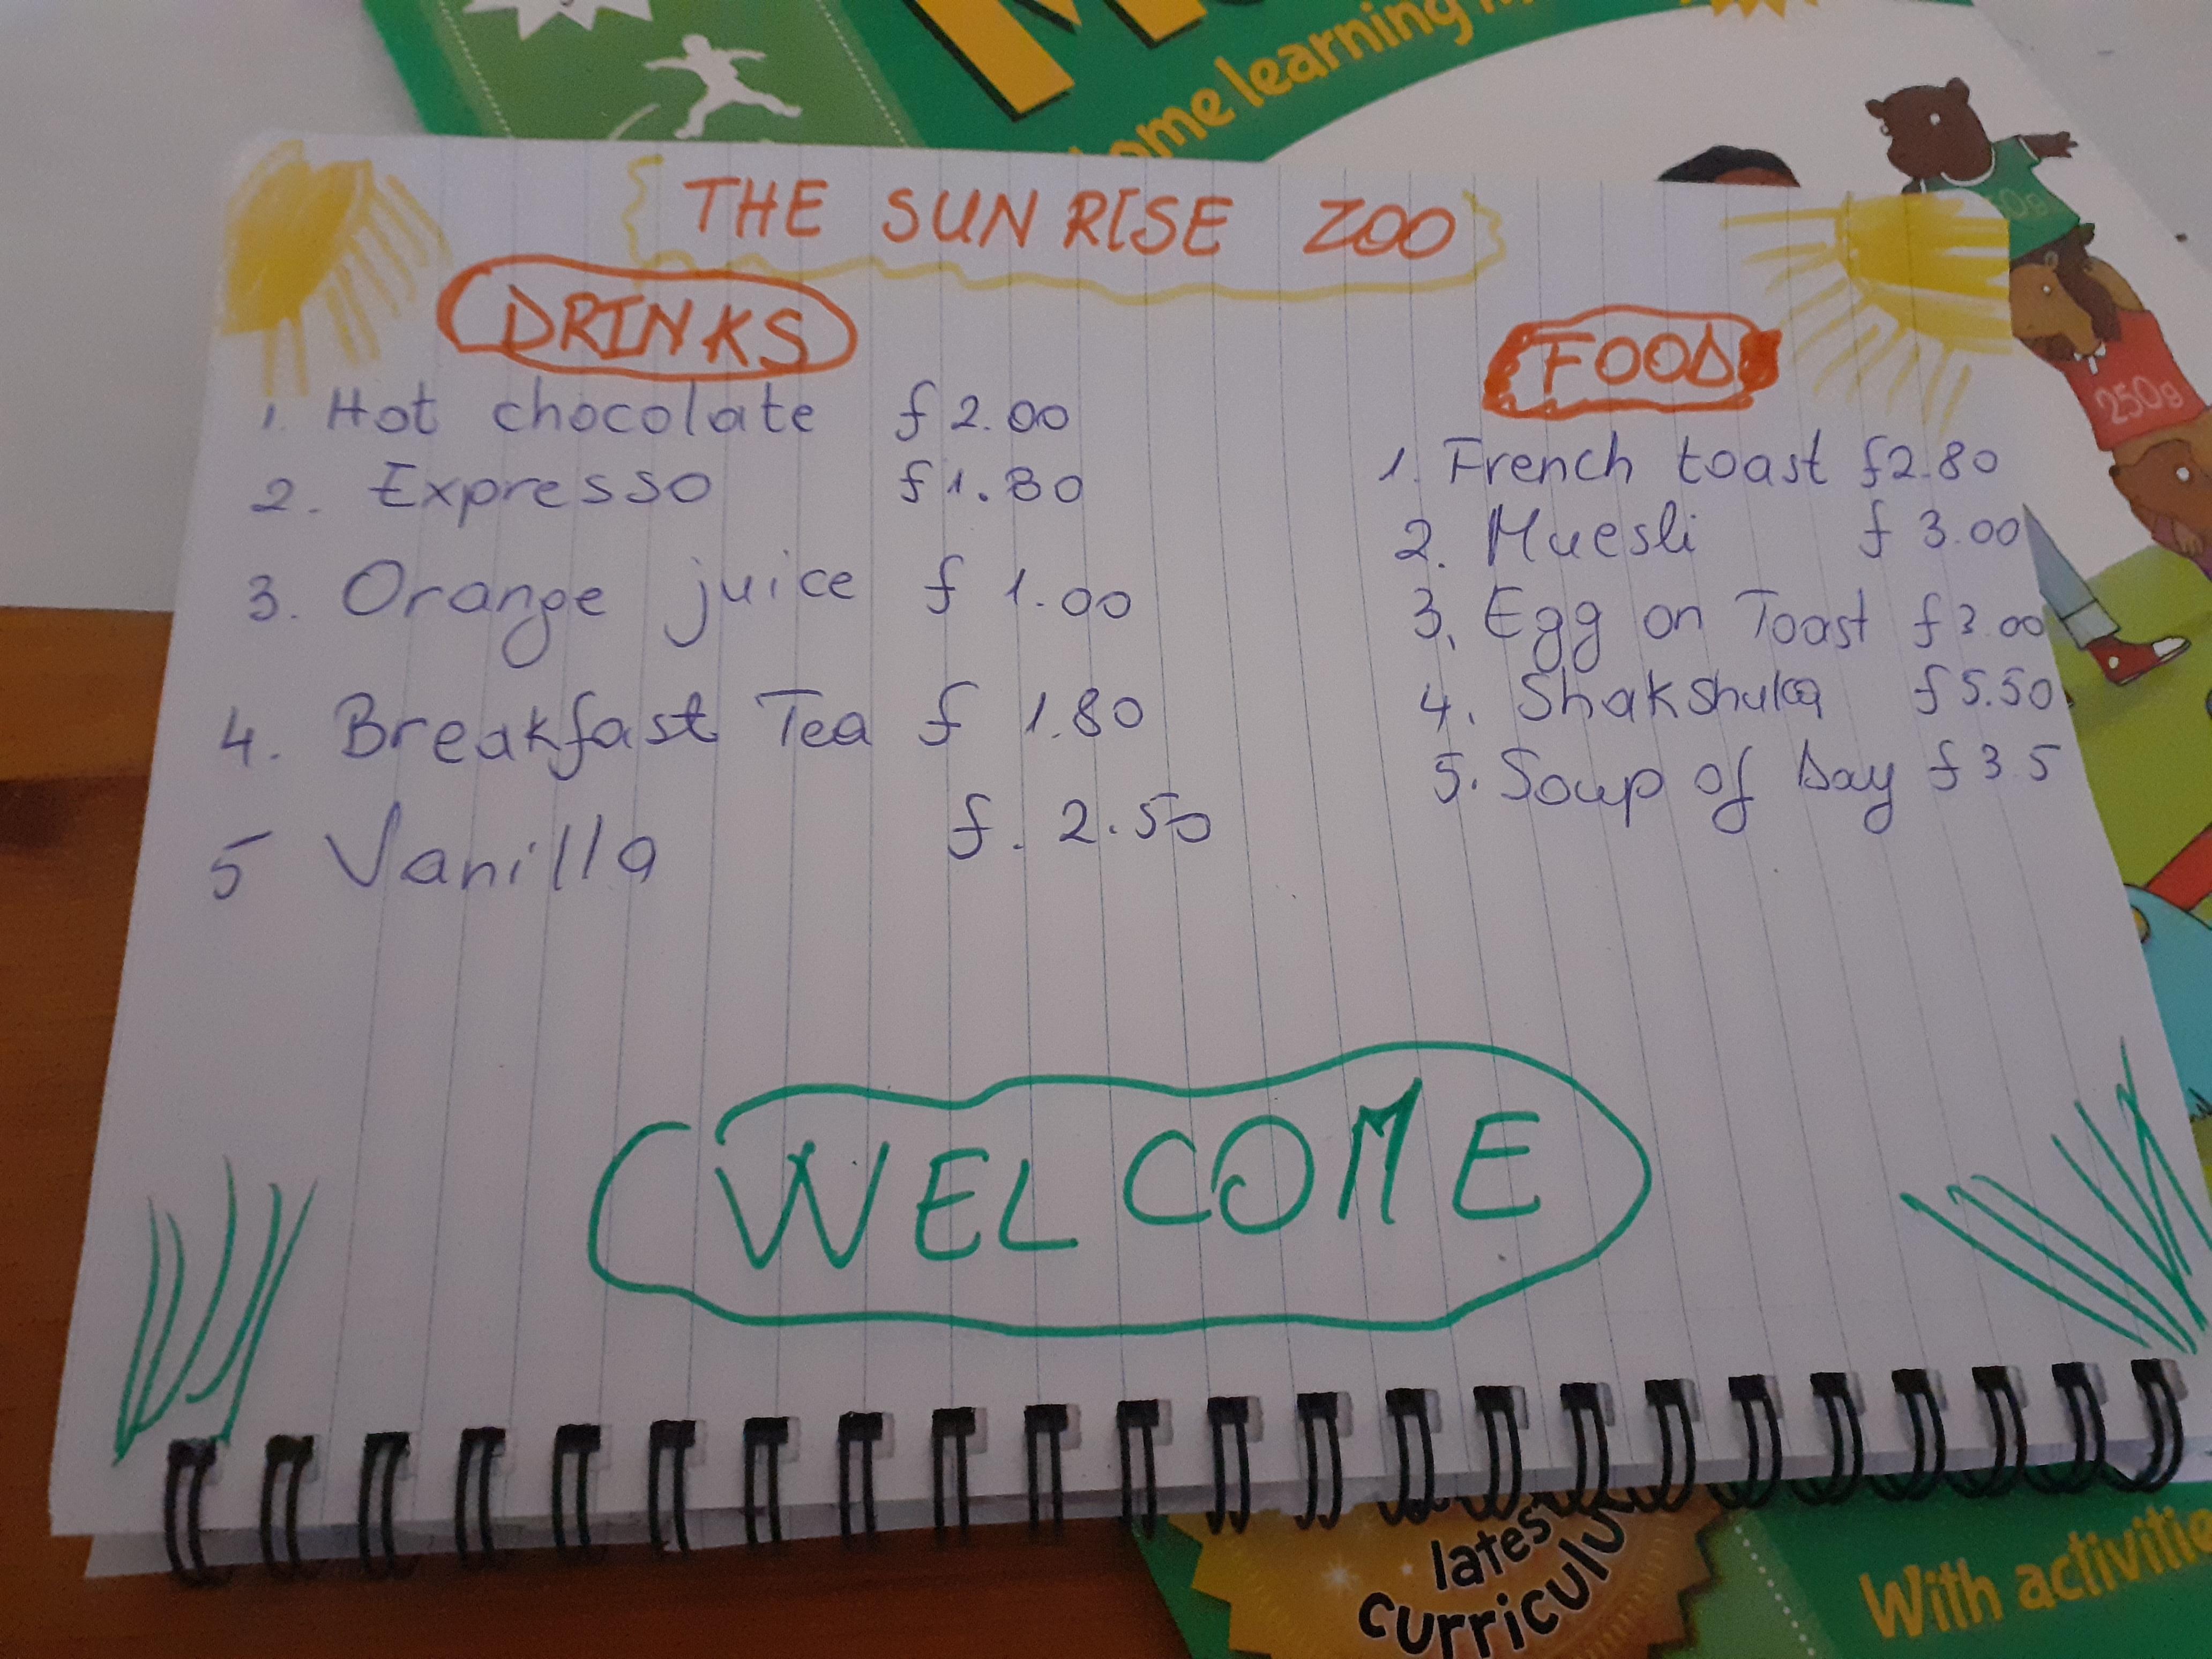 ome learning
THE SUN RISE ZOO
DRINKS
1. Hot chocolate £2.00
2. Expresso £1.80
3. Orange juice £1.00
4. Breakfast Tea £1.80
5 Vanilla £.2.50
FOOD
1. French toast £2.80
2. Muesli £3.00
3. Egg on Toast £3.00
4. Shakshuka £5.50
5. Soup of Day £3 5
WELCOME
250g
latest
curriculu
With activitie